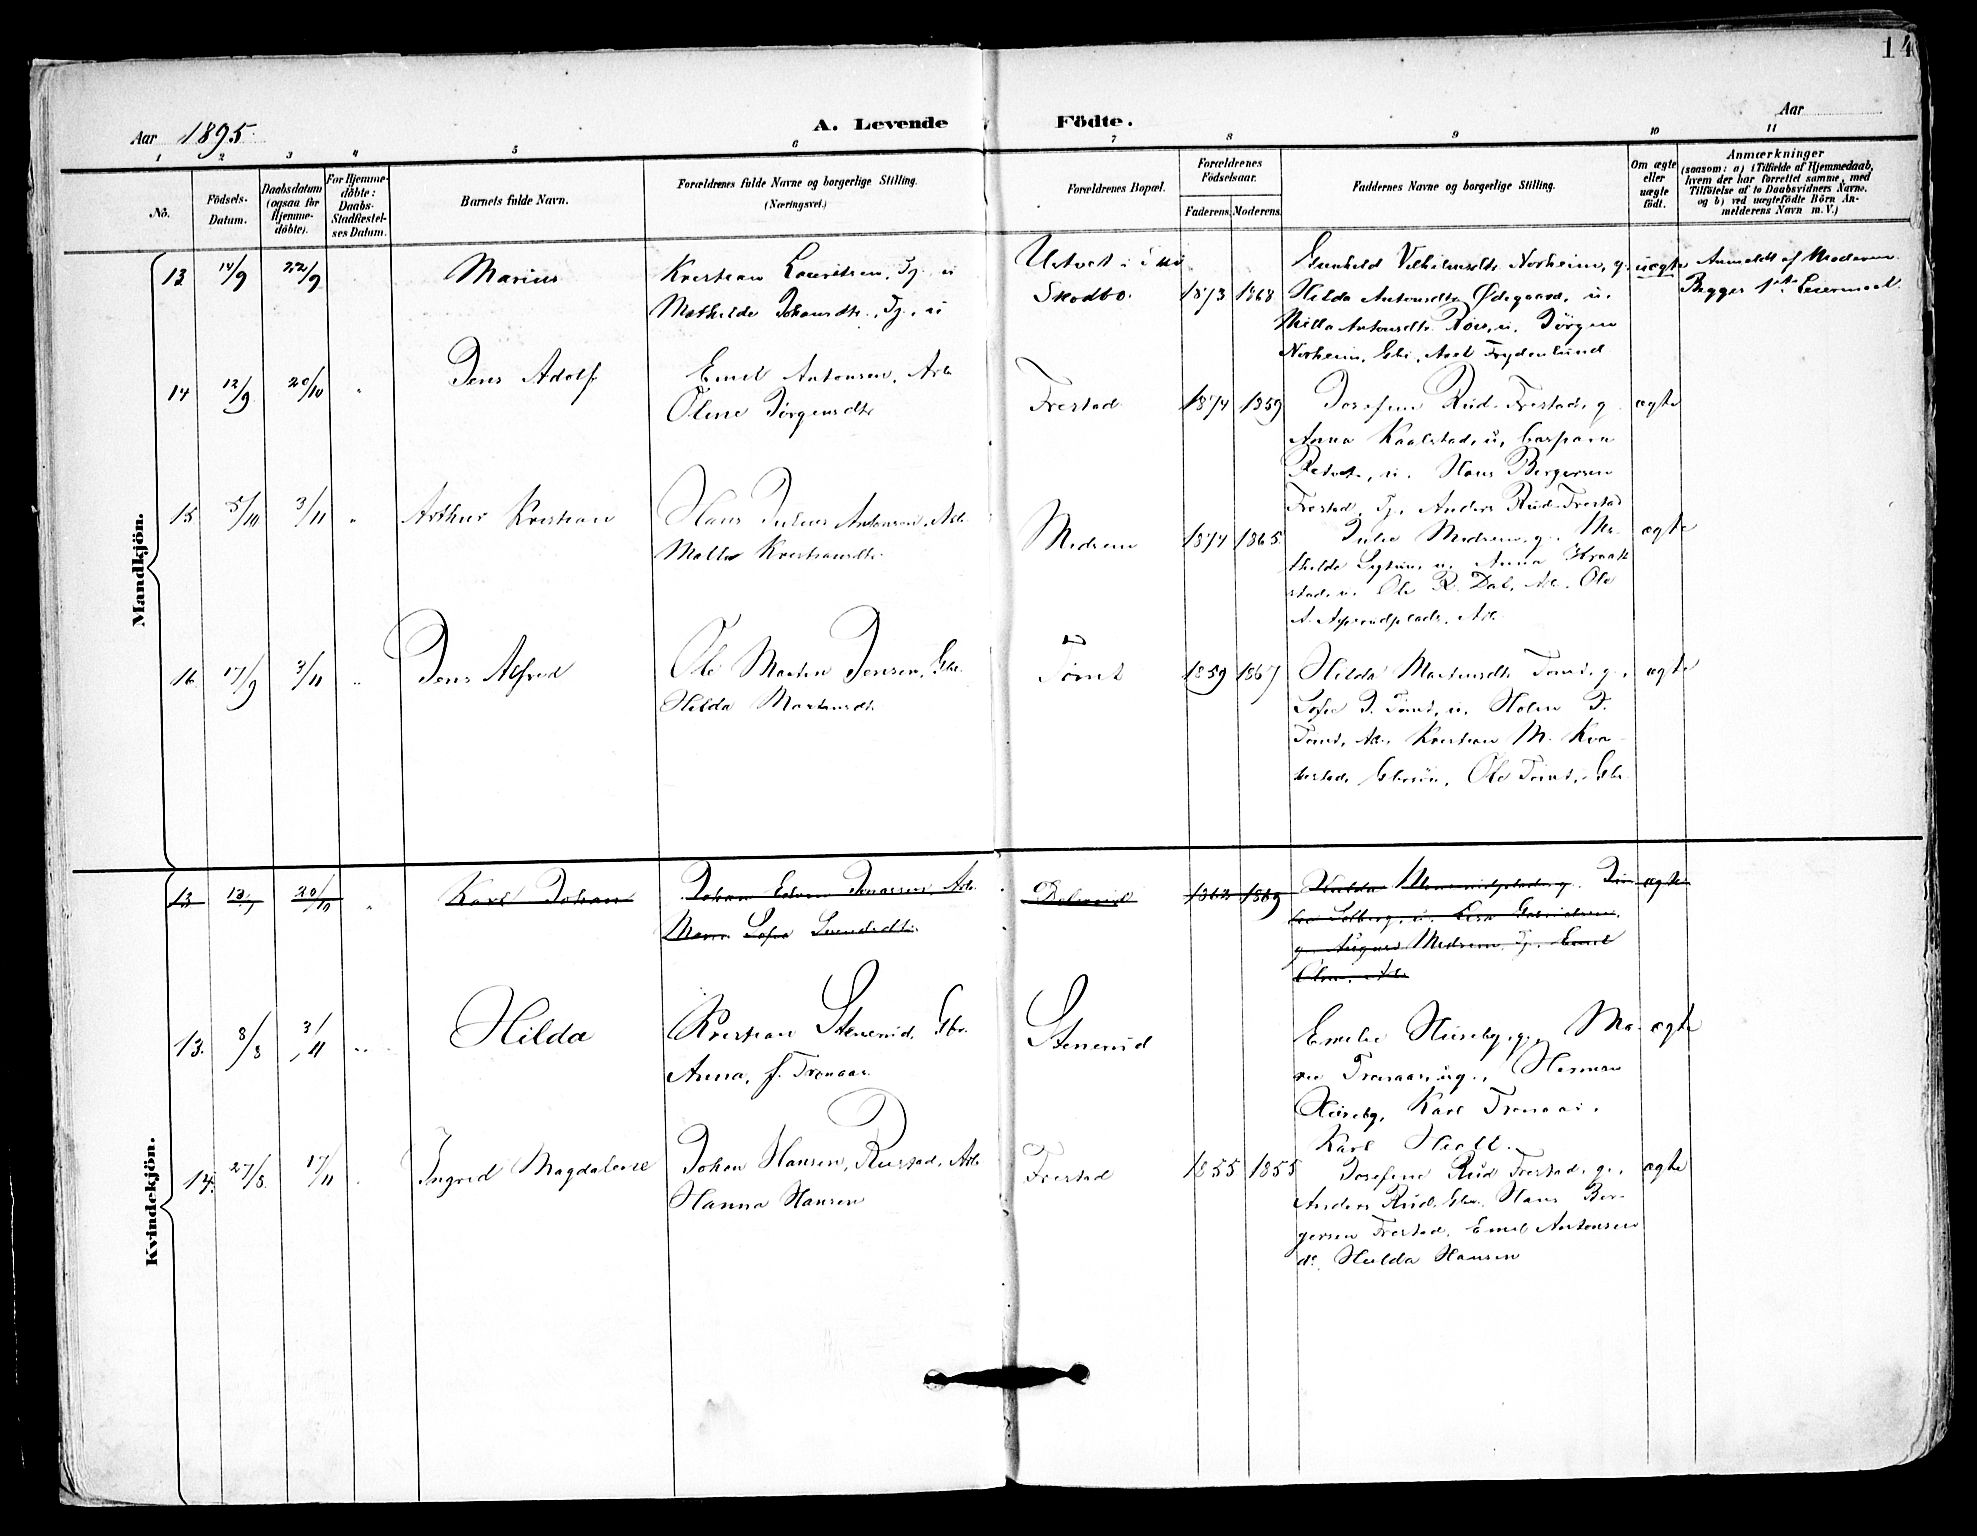 14
Aar 1895.
A. Levende Födte.
Aar
1 2 3 4 5 6 7 8 9 10 11
No.
Födsels-
Datum.
Daabsdatum
(ogsaa for
Hjemme-
döbte).
For Hjemme-
döbte:
Daabs-
Stadfæstel-
ses Datum.
Barnets fulde Navn.
Forældrenes fulde Navne og borgerlige Stilling.
(Næringsvei.)
Forældrenes Bopæl.
Forældrenes
Födselsaar.
Faderens. Moderens.
Faddernes Navne og borgerlige Stilling.
Om ægte
eller
uægte
födt.
Anmærkninger
(saasom: a) i Tilfælde af Hjemmedaab,
hvem der har forrettet samme, med
Tilföielse af to Daabsvidners Navne.
og b) ved uægtefödte Börn An-
melderens Navn m. V.)
Mandkjön.
13 14/9 22/9 Marius
Kristian Lauritsen, Tj. u
Mathilde Johansdtr., Tj., u
Skodbo.
1873 1868
Gunhild Vilhelmsdtr Norheim, g.
Hilda Antonsdtr Ødegaard, u.
Milla Antonsdtr u. Jörgen
Norheim, Gbr, Axel Frydenlund
uægte
Anmeldt af Moderen.
Begges 1ste Leiermaal.
14 12/9 20/10 " Jens Adolf
Emil Antonsen, Arb
Oline Jørgensdtr
Frestad
1874 1859
Josefine Rud Frestad, g.
Anna Kaalstad, u,
u. Hans Bergersen
Frestad, Tj., Anders Rud Frestad
ægte
15 5/10 3/11 " Arthur Kristian
Hans Julius Antonsen, Arb.
Kristiansdtr
Midsem
1874 1865
Julie Midsem, g., Ma-
thilde u. Anna
stad, u. Ole R. Dal, Arb. Ole
A. Arb.
ægte
16 17/9 3/11 " Jens Alfred
Ole Martin Jensen, Gbr.
Hilda Martinsdtr
Tomt
1859 1867
Hilda Martinsdtr Tomt, g.,
Sofie J. Tomt, u. J.
Tomt, Arb. Kristian M.
Ole Tomt, Gbr.
ægte
Kvindekjön.
13 20/10 " Karl Johan
Johan Edvin Jonassen Arb.
Maren Sofie
1869
Hulda
Solberg, u. Gabrielsen,
g. August Midsem, Tj. Emil
Olsen, Arb
ægte
13. 8/8 3/11 " Hilda
Kristian Stenerud, Gbr.
Anna, f. Tronaas
Stenerud
Emilie Huseby, g., Ma-
rie Tronaas, ug., Herman
Huseby, Karl Tronaas.
Karl
ægte
14. 27/8. 17/11 Ingrid Magdalene
Johan Hansen, Rustad, Arb.
Hanna Hansen
Frestad
1855 1855
Josefine Rud Frestad, g.,
Anders Rud, Gbr. Hans Ber-
gersen Frestad, Emil Antonsen
do. Hulda Hansen
ægte